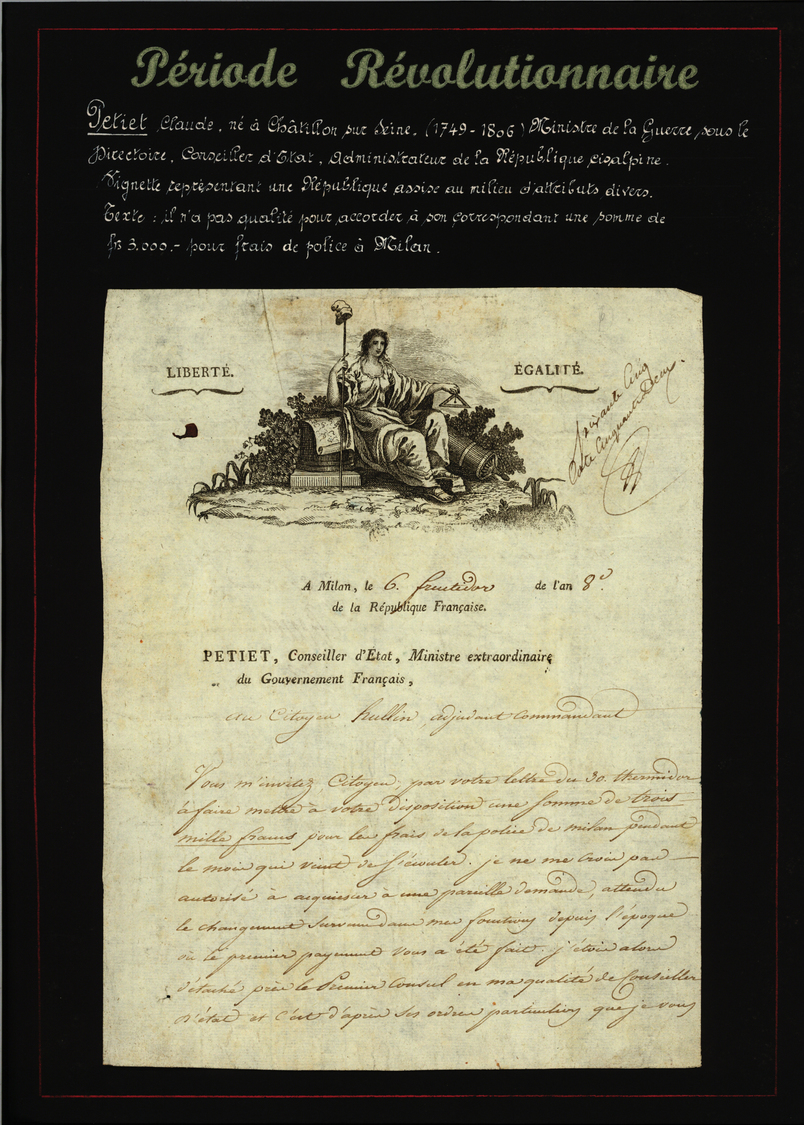 Période Révolutionnaire
Petiet Claude, né à Châtillon sur Seine. (1749-1806) Ministre de la Guerre sous le
Directoire, Conseiller d'Etat, Administrateur de la République cisalpine.
Vignette représentant une République assise au milieu d'attributs divers.
Texte : il n'a pas qualité pour accorder à son correspondant une somme de
frs 3.000.- pour frais de police à Milan.
LIBERTÉ.
ÉGALITÉ.
Soixante Cinq
Cinquante Deux
A Milan, le 6. fructidor de l'an 8e.
de la République Française.
PETIET, Conseiller d'État, Ministre extraordinaire
du Gouvernement Français,
au Citoyen hullin, adjudant commandant
Vous m'invitez, Citoyen, par votre lettre du 30. thermidor
à faire mettre à votre disposition une somme de trois
mille francs pour les frais de la police de milan pendant
le mois qui vient de s'écouler. je ne me crois pas
autorisé à acquiescer à une pareille demande, attendu
le changement survenu dans mes fonctions depuis l'époque
où le premier payement vous a été fait. j'étois alors
détaché près le Premier Consul en ma qualité de Conseiller
d'état et c'est d'après ses ordres particuliers que je vous